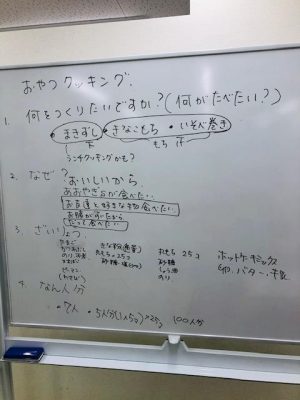 おやつクッキング.
1. 何をつくりたいですか?(何がたべたい?)
・まきずし ・きなこもち ・いそべ巻き
ランチクッキングかも?
2. なぜ? おいしいから
お友達と好きな物食べたい
お腹がすいたから
だって食べたい
3. ざいりょう
たまご きな粉 おもち 25コ ホットケーキミックス
おもち 25コ 砂糖 卵、バター
砂糖 しょう油
ピーマン のり
4. なん人分
・7人 ・5人分 100人分